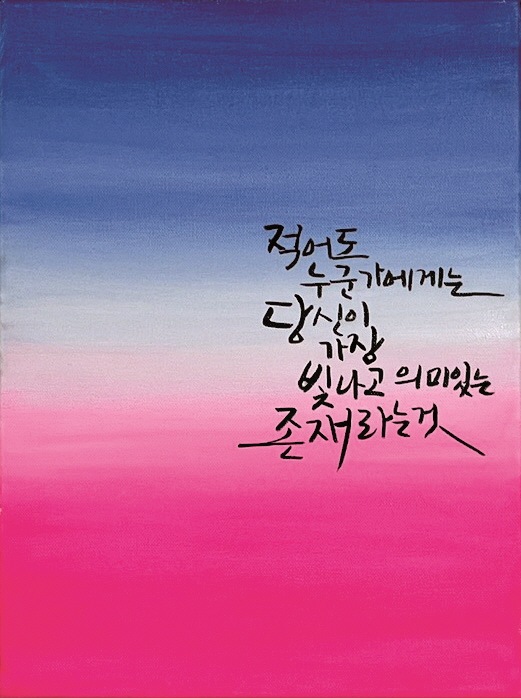 적어도
누군가에게는
당신이
가장
빛나고 의미있는
존재라는것